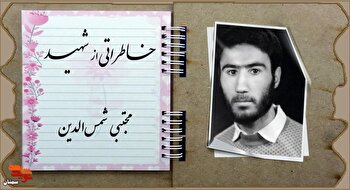 خاطراتی از شهید
مجتبی شمس الدین
سمنان